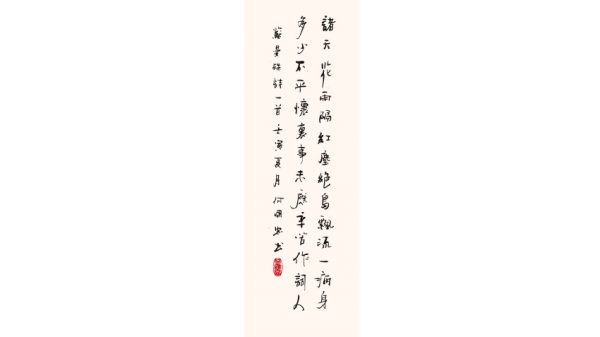 諸天花雨隔紅塵絕島飄流一病身
多少不平懷裏事未應辛苦作詞人
蘇曼殊詩一首壬寅夏月何書